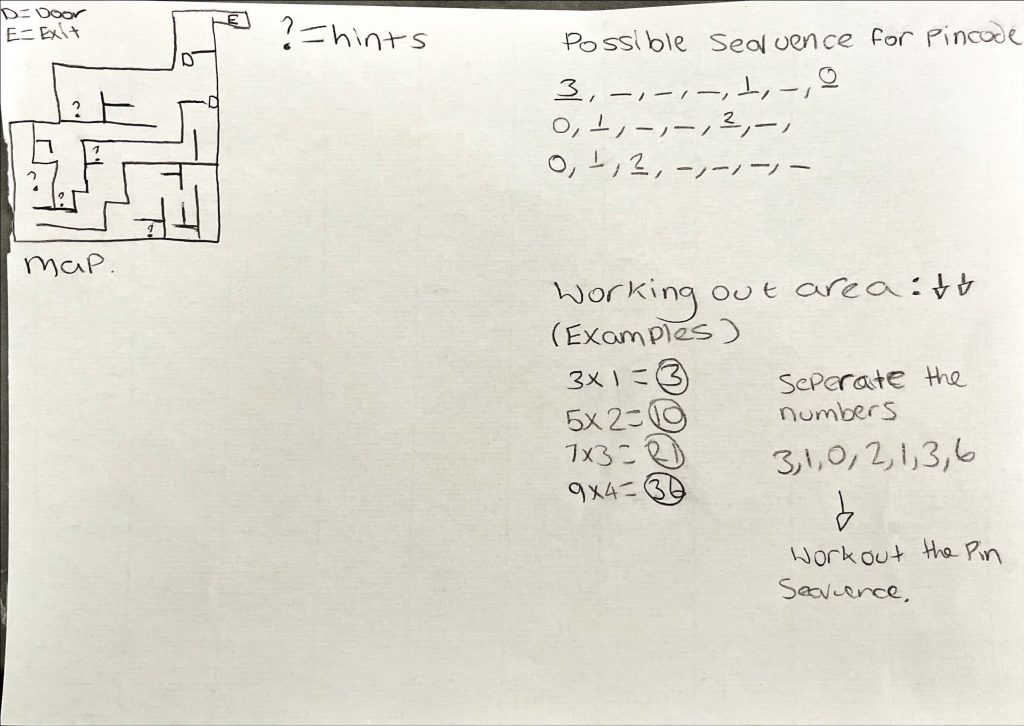 D=Door
E=Exit
E
D
D
?
?
?
?
?
map.
?=hints
Possible Sequence for Pincode
3, _, _, _, 1, _, 0
0, 1, _, _, 2, _,
0, 1, 2, _, _, _, _
Working out area: ↓↓
(Examples)
3x1=3
5x2=10
7x3=21
9x4=36
Seperate the
numbers
3,1,0,2,1,3,6
↓
Workout the Pin
Sequence.